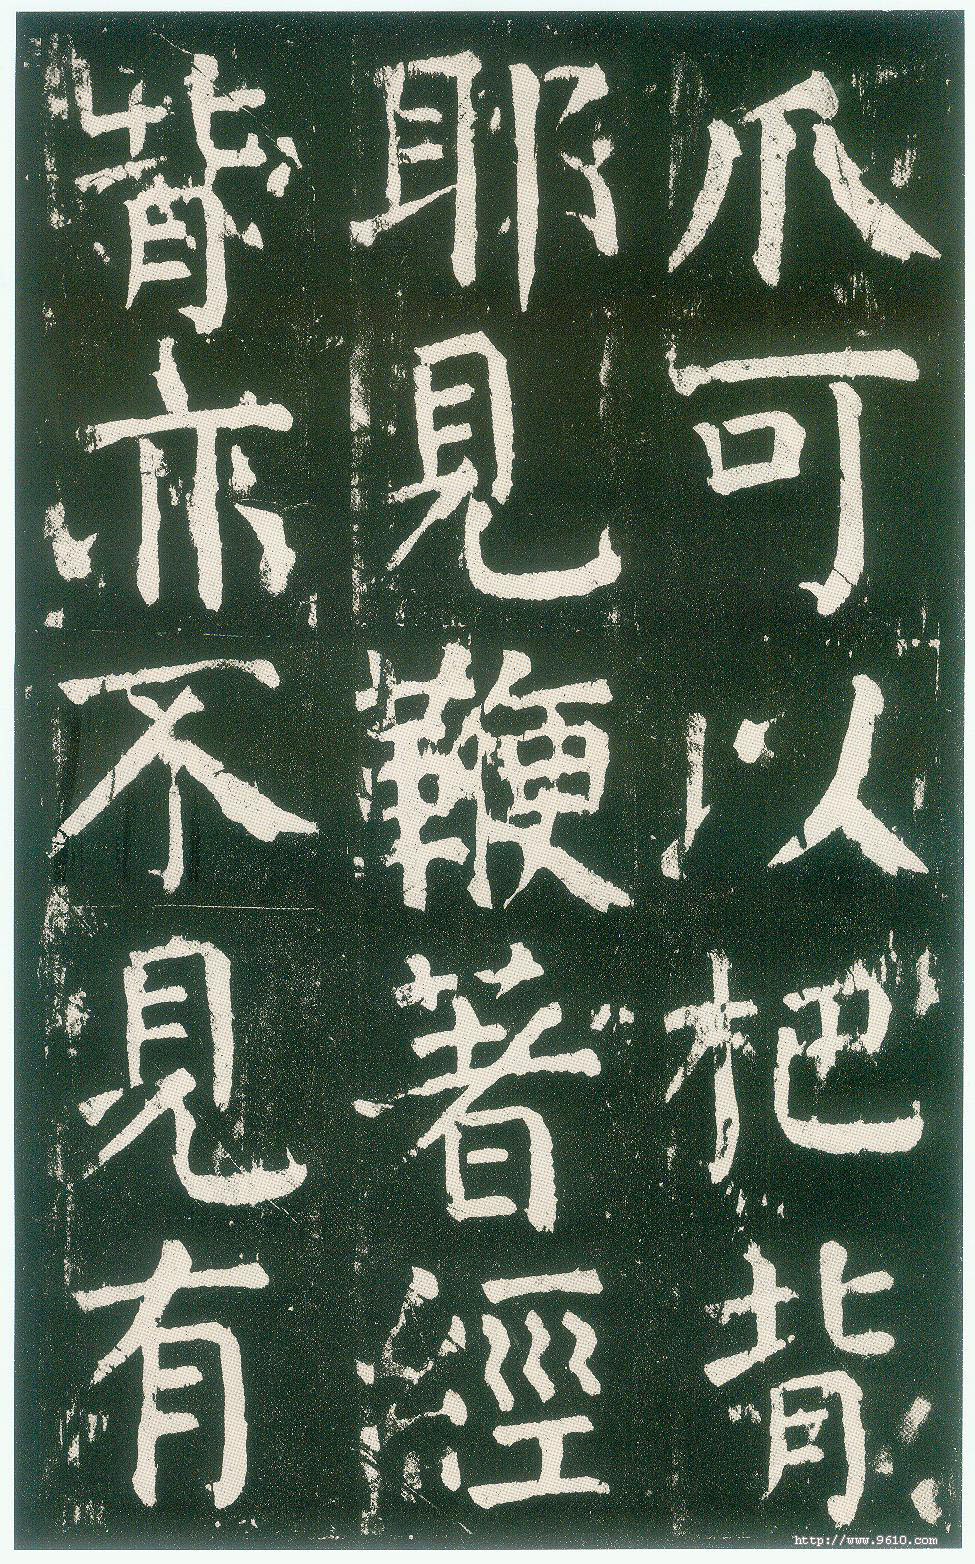 爪可以把背
耶見鞭者經
背亦不見有
http://www.9610.com